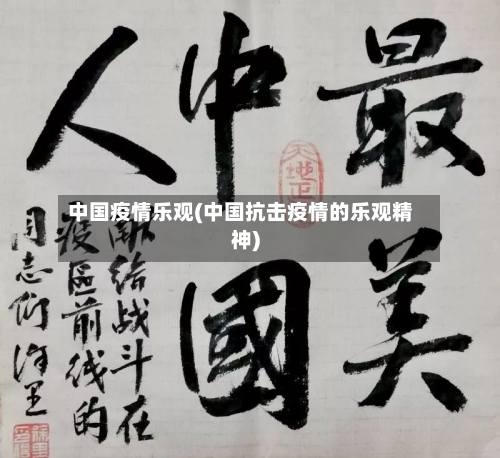 最美
中國
人
献给战斗在
疫區前线的
同志们
天地正
中国疫情乐观(中国抗击疫情的乐观精
神)